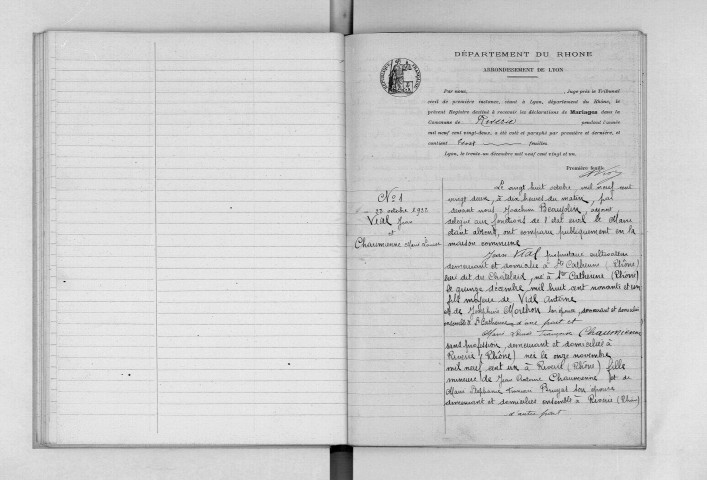 DÉPARTEMENT DU RHONE
ARRONDISSEMENT DE LYON
RÉPUBLIQUE FRANÇAISE
Par nous, , Juge près le Tribunal
civil de première instance, séant à Lyon, département du Rhône, le
présent Registre destiné à recevoir les déclarations de Mariages dans la
Commune de Riverie pendant l'année
mil neuf cent vingt-deux, a été coté et paraphé par première et dernière, et
contient feuilles.
Lyon, le trente-un décembre mil neuf cent vingt et un.
Première feuille
No 1
octobre 1922
Vial Jean
et
Chaumienne Marie
Le vingt huit octobre, mil neuf cent
vingt deux, à dix heures du matin, par
devant nous Joachim Beaujolin, adjoint
délégué aux fonctions de l'état civil le Maire
étant absent, ont comparu publiquement en la
maison commune
Jean Vial propriétaire cultivateur
demeurant et domicilié à Ste Catherine (Rhône)
lieu dit du Chatelard, né à Ste Catherine (Rhône)
le quinze décembre, mil huit cent nonante et un
fils majeur de Vial Antoine
et de Joséphine son épouse, demeurant et domiciliés
ensemble à Ste Catherine d'une part et
Marie Françoise Chaumienne
sans profession, demeurant et domiciliée à
Riverie (Rhône) née le onze novembre
mil neuf cent un à Riverie (Rhône) fille
mineure de Jean Antoine Chaumienne et de
Marie Stéphanie son épouse
demeurant et domiciliés ensemble à Riverie (Rhône)
d'autre part